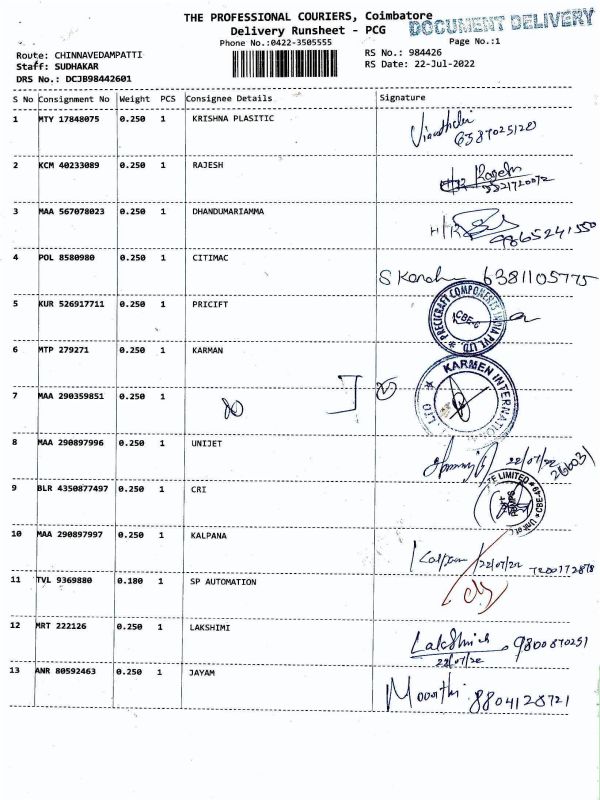 THE PROFESSIONAL COURIERS, Coimbatore
DOCUMENT DELIVERY
Delivery Runsheet - PCG
Phone No.:0422-3505555
Page No.:1
Route: CHINNAVEDAMPATTI
RS No.: 984426
Staff: SUDHAKAR
RS Date: 22-Jul-2022
DRS No.: DCJB98442601
S No Consignment No Weight PCS Consignee Details Signature
1 MTY 17848075 0.250 1 KRISHNA PLASITIC
2 KCM 40233089 0.250 1 RAJESH
3 MAA 567078023 0.250 1 DHANDUMARIAMMA
H/R 9865241550
4 POL 8580980 0.250 1 CITIMAC
6381105775
5 KUR 526917711 0.250 1 PRICIFT
PRECICRAFT COMPONENTS INDIA PVT. LTD. CBE-6
6 MTP 279271 0.250 1 KARMAN
KARMEN INTERNATIONAL
7 MAA 290359851 0.250 1
8 MAA 290897996 0.250 1 UNIJET
22/07/22
9 BLR 4350877497 0.250 1 CRI
LIMITED CBE-49 Unit
10 MAA 290897997 0.250 1 KALPANA
22/07/22
11 TVL 9369880 0.180 1 SP AUTOMATION
12 MRT 222126 0.250 1 LAKSHIMI
Lakshmi 9800870251
22/07/22
13 ANR 80592463 0.250 1 JAYAM
Moorthi 8804128721